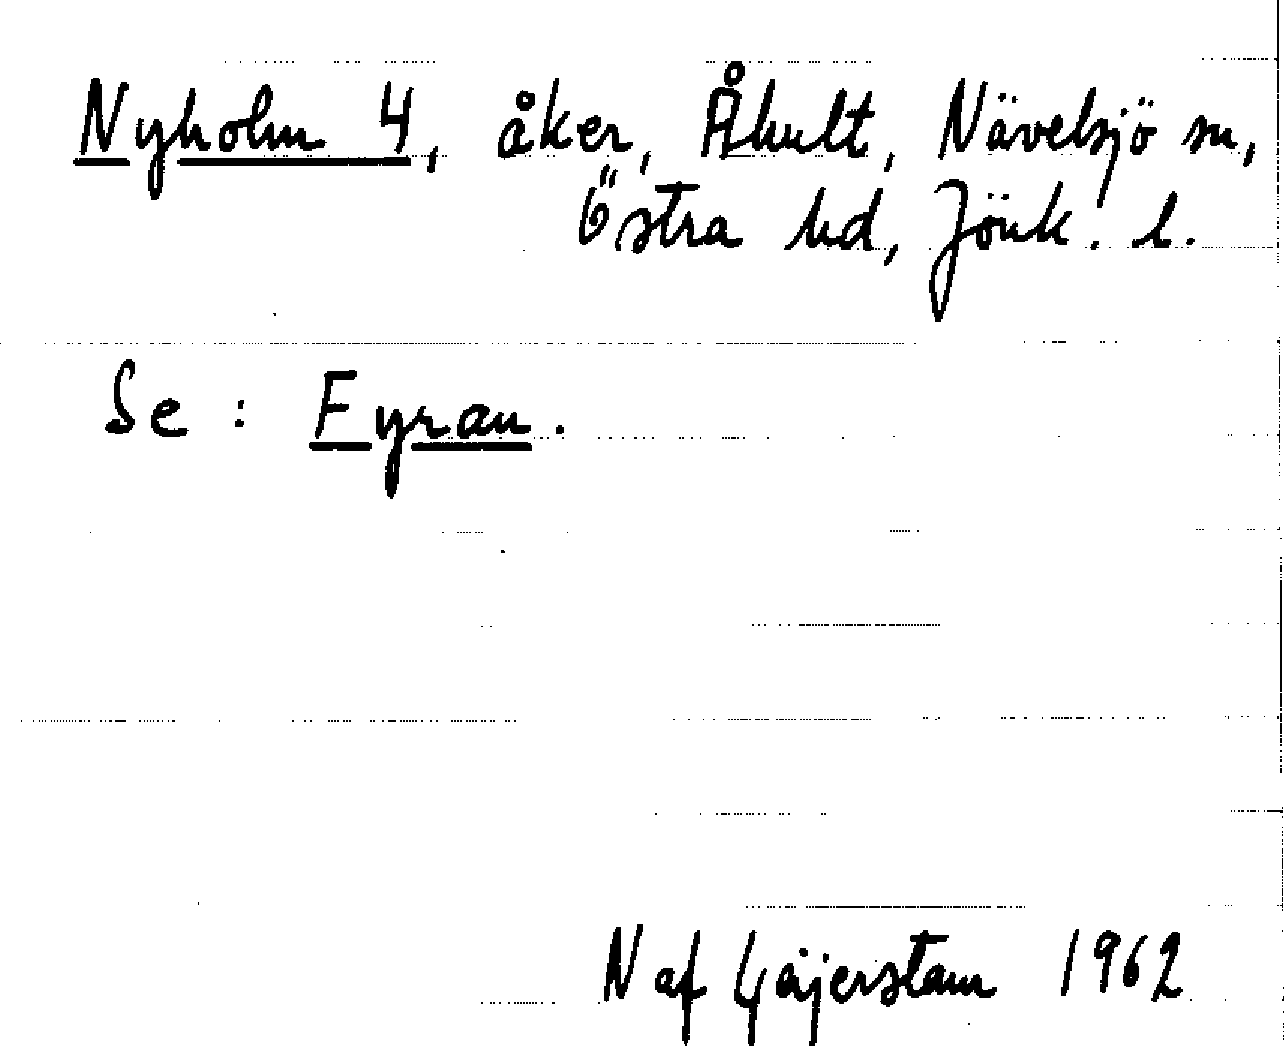 Nyholm 4, åker, Åhult, Nävelsjö sn,
Östra hd, Jönk. l.
Se: Fyran.
N af Gäjerstam 1962